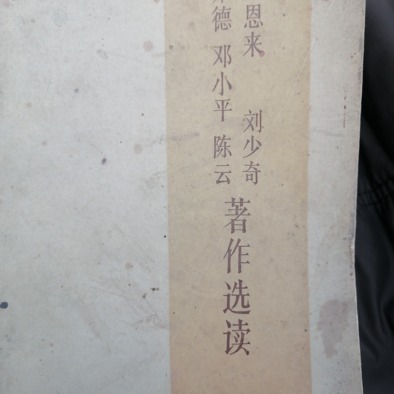 恩来 刘少奇
德 邓小平 陈云
著作选读